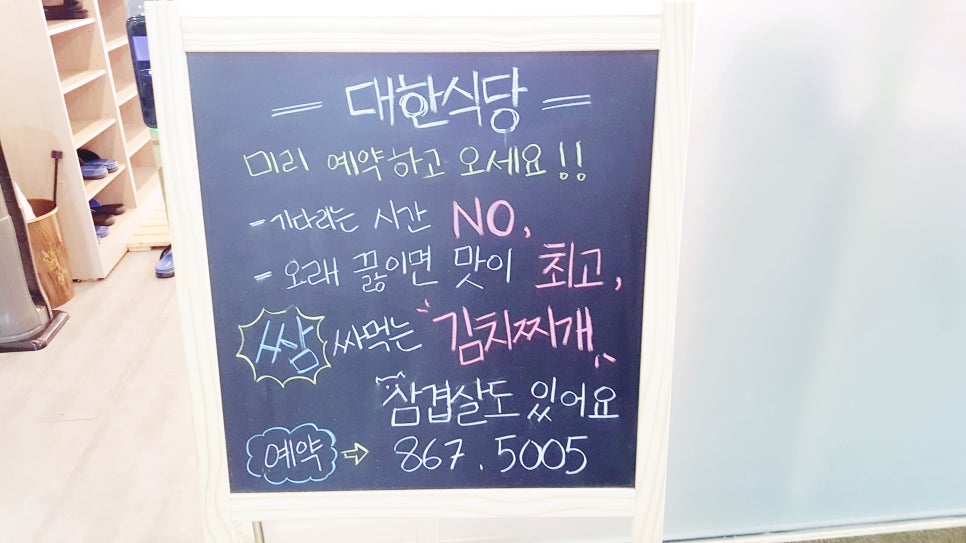 = 대한식당 =
미리 예약하고 오세요!!
- 기다리는 시간 NO,
- 오래 끓이면 맛이 최고,
쌈 싸먹는 "김치찌개"
삼겹살도 있어요
예약 ⇨ 867.5005